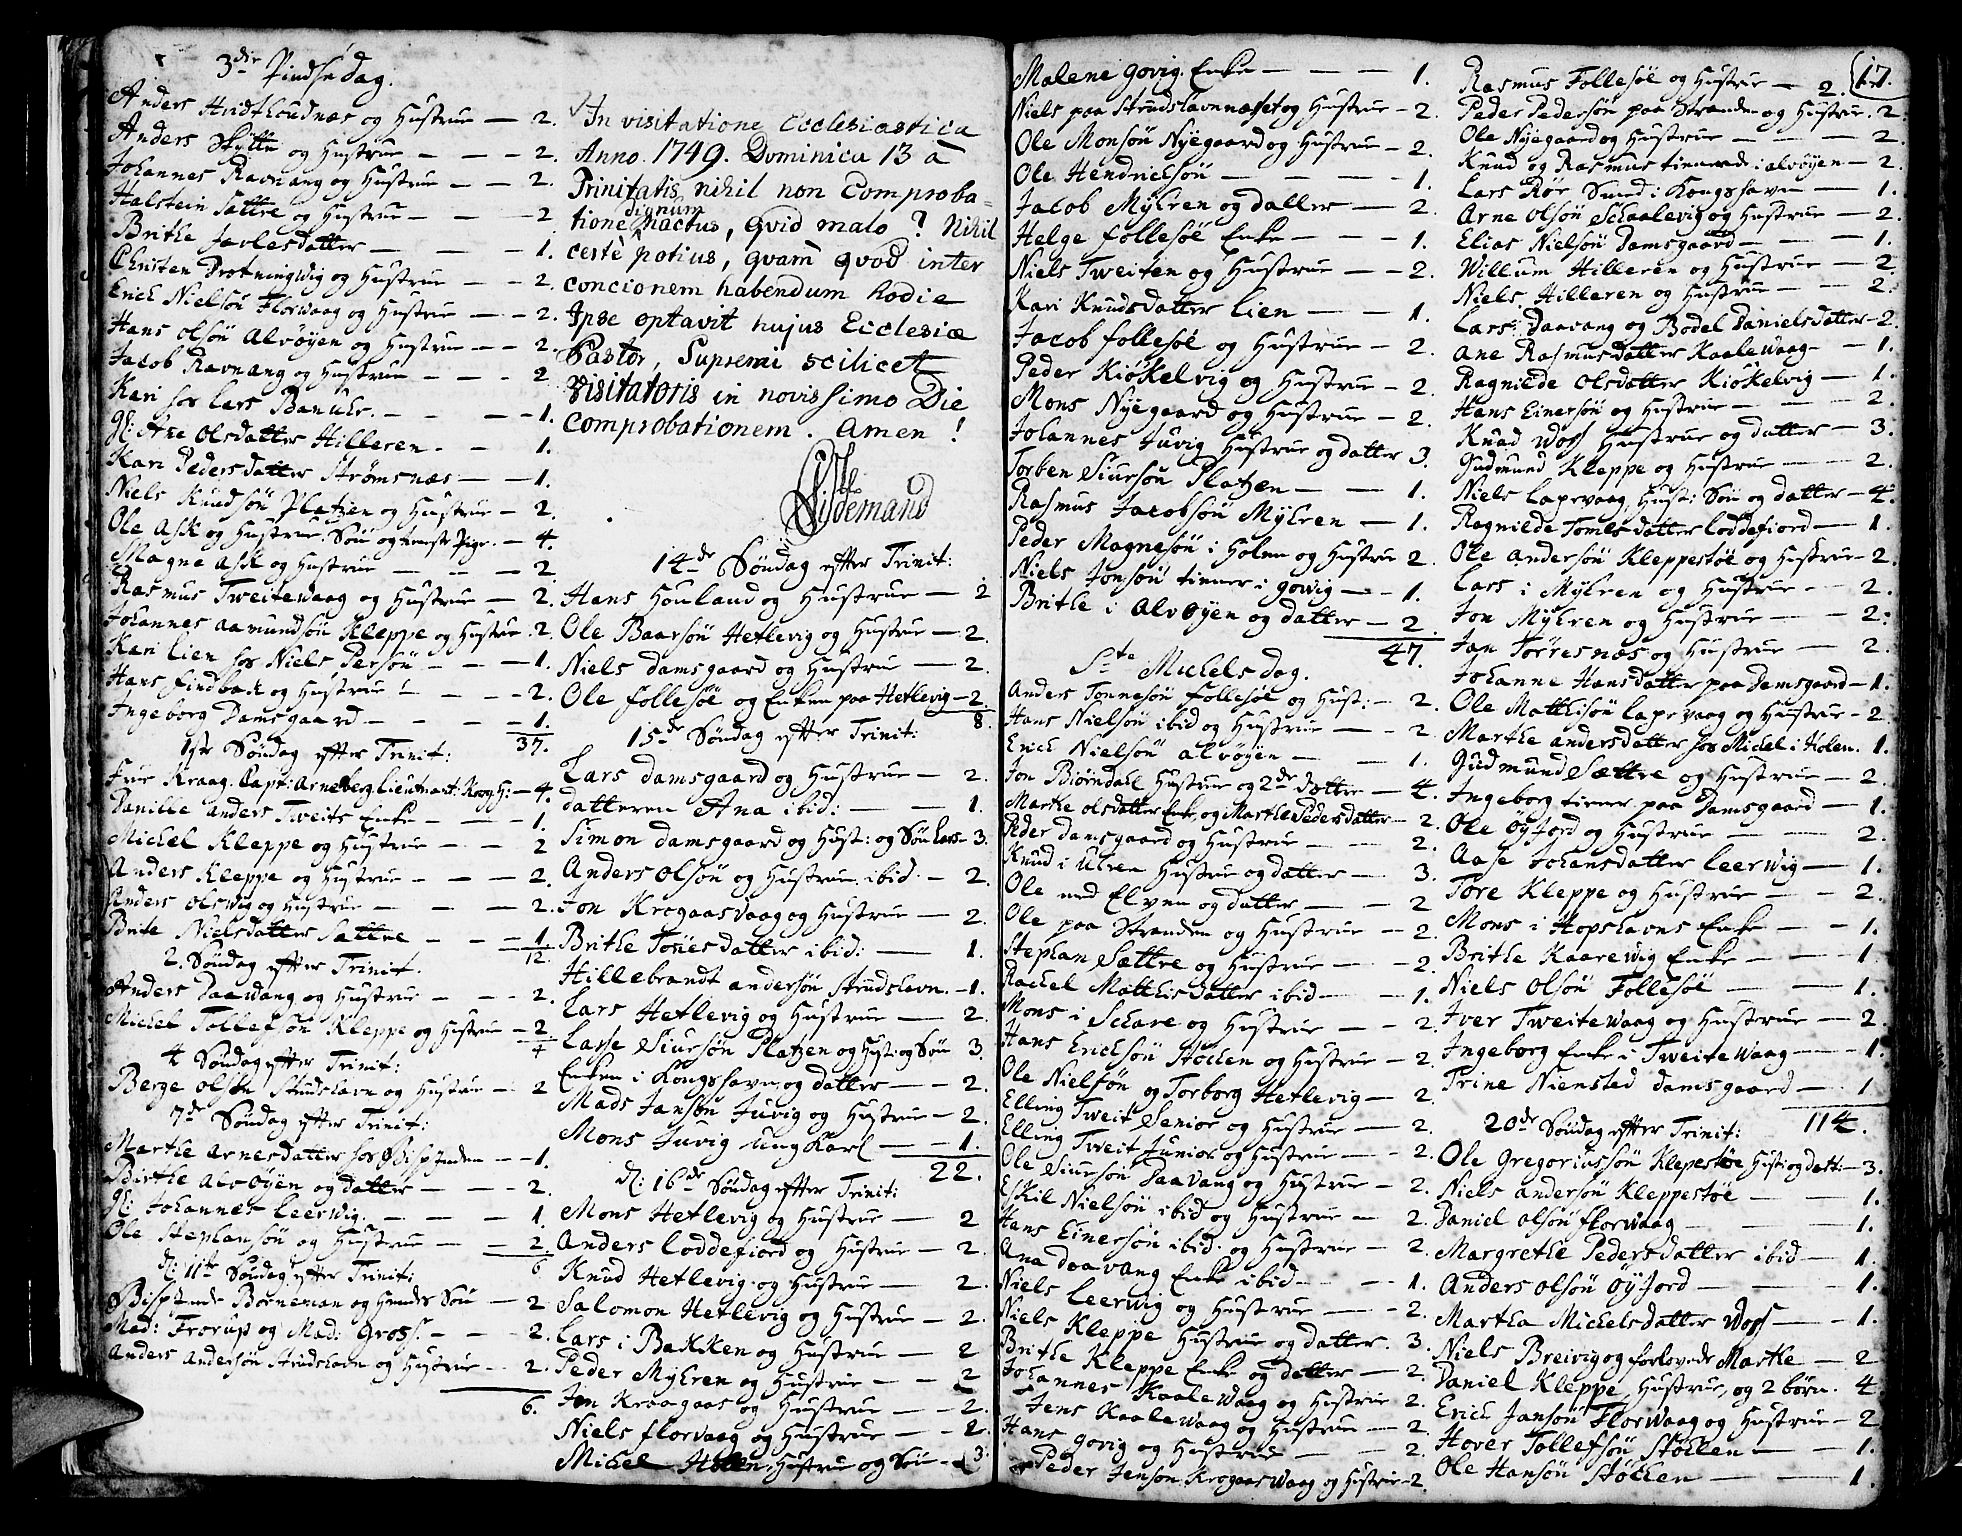 3die Pindse dag.
Anders Hvidthoudnæs og Hustrue — 2.
Anders Skÿtte og Hustrue — — 2.
Johannes Ravnang og Hustrue — — 2.
Halstein Sættre og Hustrue — — 2.
Brithe Jarlesdatter — — 1.
Christen Drotningwig og Hustrue — — 2.
Erich Nielsön Florwaag og Hustrue — — 2.
Hans Olsön Alvöÿen og Hustrue — — 2.
Jacob Ravnang og Hustrue — — 2
Kari hos Lars — — 1.
Gl: Ane Olsdatter Hilleren — — 1.
Kari Pedersdatter Strømsnæs — — 1.
Niels Knudsön Platzen og Hustrue — 2.
Ole Ask og Hustrue, Sön og Pige — 4.
Magne Ask og Hustrue — — 2.
Rasmus Tweitewaag og Hustrue — 2.
Johannes Aamundsön Kleppe og Hustrue 2.
Kari Lien hos Niels Persön — — 1.
Hans Findbak og Hustrue — — 2.
Ingeborg Damsgaard — — 1.
37.
1ste Söndag effter Trinit:
Frue Kraag. Capt: Arneberg Lieutnant: Krog H: — 4.
Pernille Anders Tweits Enke — — 1.
Michel Kleppe og Hustrue — — 2
Anders Kleppe og Hustrue — — 2.
Anders Olswig og Hustrue — — 2.
Brite Nielsdatter Sættre — — 1
12.
2. Söndag effter Trinit.
Anders Daavang og Hustrue — — 2.
Michel Tollefsön Kleppe og Hustrue — 2
4
4 Söndag effter Trinit:
Berge Olsön Studshavn og Hustrue — 2
7de Söndag effter Trinit:
Marthe Arnesdatter hos Bispinden — 1.
Birthe Alvöÿen og datter — — 2.
Gl: Johannes Leerwig — — 1.
Ole Stephansön og Hustrue — — 2.
6
D: 11te Söndag effter Trinit:
Bispinde Borneman og Hendes Sön — 2
Mad: Frorup og Mad: Gross. — — 2.
Anders Andersön Studshavn og Hustrue — 2.
6.
In visitatione Ecclesiastica
Anno. 1749. Dominica 13 à
Trinitatis nihil non Comproba-
tione dignum nactus, qvid malo? Nihil
certè potius, qvam qvod inter
concionem habendum hodie
Ipse optavit hujus Ecclesiæ
Pastor, Supremi scilicet
Visitatoris in novissimo Die
comprobationem. Amen!
Tildemand
14de Söndag effter Trinit:
Hans Houland og Hustrue — 2
Ole Baarsön Hetlevig og Hustrue — 2.
Niels Damsgaard og Hustrue — 2.
Ole Follesöe og Enken paa Hetlevig — 2
8.
15de Söndag effter Trinit:
Lars Damsgaard og Hustrue — 2.
datteren Ana ibid: — — 1.
Simon Damsgaard og Hust: og Sön Lars — 3.
Anders Olsön og Hustrue ibid. — 2.
Jon Krogaasvaag og Hustrue — 2.
Brithe Tönesdatter ibid: — 1.
Hillebrandt Andersön Studshavn. — 1.
Lars Hetlevig og Hustrue — 2.
Lasse Siursön Platzen og Hust: og Sön 3.
Enken i Kongshavn og datter — 2.
Mads Jansön Juvig og Hustrue — 2.
Mons Juvig ung Karl — 1.
22.
D: 16de Söndag effter Trinit:
Mons Hetlevig og Hustrue — 2
Anders Loddefiord og Hustrue — 2.
Knud Hetlevig og Hustrue — 2.
Salomon Hetlevig og Hustrue — 2.
Lars i Bakken og Hustrue — 2
Peder Mÿhren og Hustrue — — 2
Jon Kraagaas og Hustrue — — 2.
Niels Florvaag og Hustrue — — 2.
Michel Holen, Hustrue og Sön — 3.
Malene Govig. Enke — — 1.
Niels paa Studshavnnæsset og Hustrue — 2.
Ole Monsön Nÿegaard og Hustrue — 2.
Ole Hendrichsön — — 1.
Jacob Mÿhren og datter — 2.
Helge Follesöe Enke — — 1.
Niels Tweiten og Hustrue — — 2.
Kari Knudsdatter Lien — — 1.
Jacob Follesöe og Hustrue — 2.
Peder Kiökelvig og Hustrue — 2.
Mons Nÿegaard og Hustrue — 2.
Johannes Juvig Hustrue og datter 3.
Torben Siursön Platzen — — 1.
Rasmus Jacobsön Mÿhren — 1.
Peder Magnesön i Holen og Hustrue 2.
Niels Jonsön tiener i Gowig — 1.
Brithe i Alvöÿen og datter — 2.
47.
Ste Michels dag.
Anders Tonnesön Follesöe og Hust: — 2.
Hans Nielsön ibid og Hustrue — — 2.
Erich Nielsön Alvöÿen — — 1.
Jon Biörndall Hustrue og 2de Døttre — 4.
Marthe Olsdatter Enke, og Marthe Pedersdatter — 2.
Peder Damsgaard og Hustrue — 2.
Knud i Ulven Hustrue og datter — 3.
Ole ved Elven og datter — — 2
Ole paa Stranden og Hustrue — 2.
Stephan Sættre og Hustrue — — 2.
Rachel Matthisdatter ibid — — 1.
Mons i Schare og Hustrue — — 2.
Hans Erichsön Stöchen og Hustrue — 2.
Ole Nielsön og Torborg Hetlevig — 2.
Elling Tweit Senior og Hustrue — 2.
Elling Tweit Junior og Hustrue — 2.
Ole Siursön Daavang og Hustrue — 2.
Eskil Nielsön ibid og Hustrue — 2.
Hans Einersön ibid. og Hustrue — 2.
Ana Daavang Enke ibid — 1.
Niels Leerwig og Hustrue — 2.
Niels Kleppe Hustrue og datter. 3.
Brithe Kleppe Enke og datter — 2.
Johannes Kaalewaag og Hustrue 2.
Jens Kaalewaag og Hustrue — 2.
Hans Govig og Hustrue — — 2.
Peder Jensön Krogaaswaag og Hustrue — 2.
17.
Rasmus Follesöe og Hustrue — 2.
Peder Pedersön paa Stranden og Hustrue. 2.
Ole Nÿegaard og Hustrue — — 2.
Knud og Rasmus tienende i Alvöÿen — 2.
Lars Rör Sund i Kongshavn — 1.
Arne Olsön Schaalevig og Hustrue — 2.
Elias Nielsön Damsgaard — — 1.
Willum Hilleren og Hustrue — 2.
Niels Hilleren og Hustrue — — 2.
Lars Daavang og Bodel Danielsdatter — 2.
Ane Rasmusdatter Kaalewaag — 1.
Ragnilde Olsdatter Kiökelvig — 1.
Hans Einersön og Hustrue — — 2.
Knud Woss Hustrue og datter — 3.
Gudmund Kleppe og Hustrue — — 2.
Niels Lapevaag, Hust: Sön og datter — 4.
Ragnilde Tomesdatter Loddefiord — 1.
Ole Andersön Kleppestöe og Hustrue — 2.
Lars i Mÿhren og Hustrue — 2.
Jon Mÿhren og Hustrue — — 2.
Jan Törresnæs og Hustrue — 2.
Johanne Hansdatter paa Damsgaard — 1.
Ole Matthisön Lapevaag og Hustrue — 2.
Marthe Andersdatter hos Michel i Holen. 1.
Gudmund Sættre og Hustrue — 2.
Ingeborg tiener paa Damsgaard — 1.
Ole Öÿjord og Hustrue — — 2.
Aase Johansdatter Leerwig — 1.
Tore Kleppe og Hustrue — — 2.
Mons i Hopshavns Enke — — 1.
Brithe Kaarewig Enke — — 1.
Niels Olsön Follesöe — — 1.
Iver Tweitewaag og Hustrue — 2.
Ingeborg Enke i Tweitewaag — 1.
Trine Niensted Damsgaard — 1
114.
20de Söndag effter Trinit:
Ole Gregoriussön Klepestöe Hust: og dett: — 3.
Niels Andersön Kleppestöe — — 1.
Daniel Olsön Florwaag — — 1.
Margrethe Pedersdatter ibid — 1.
Anders Olsön Öÿjord — — 1.
Martha Michelsdatter Woss — 1.
Niels Breivig og forlovede Marthe — 2
Daniel Kleppe, Hustrue, og 2 börn. 4.
Erich Jansön Florwaag og Hustrue — 2
Hover Tollefsön Stöchen — — 1.
Ole Hansön Stöchen — — 1.